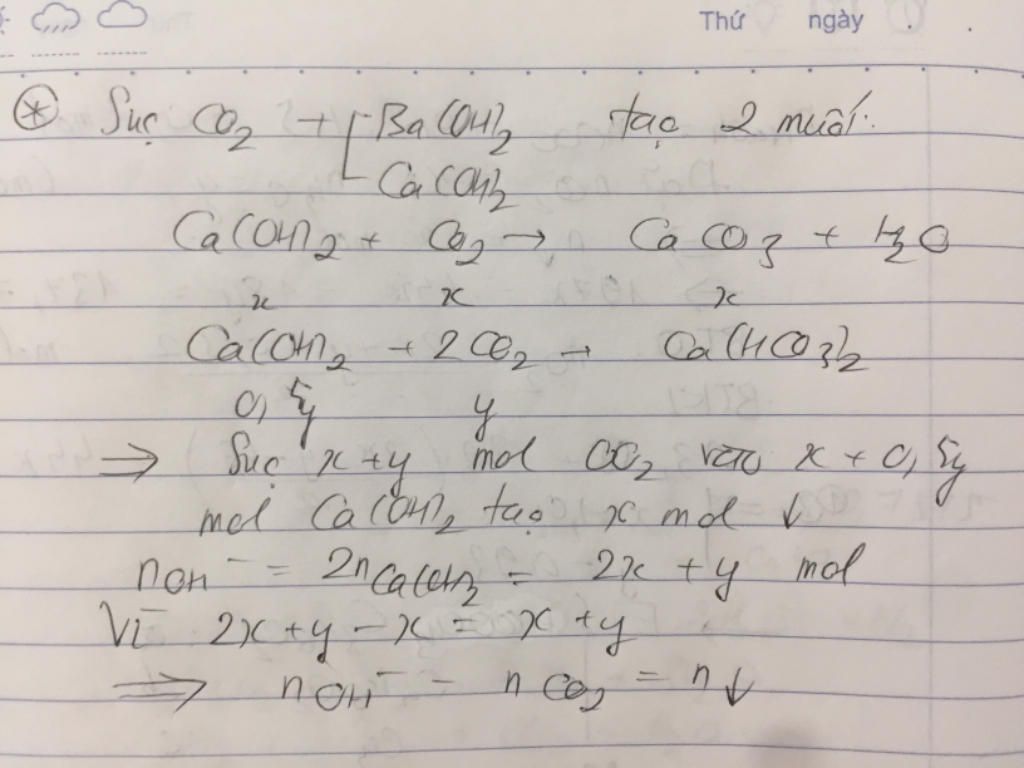 Thứ ngày . .
⊛ Sục CO₂ + [ Ba(OH)₂ tạo 2 muối.
Ca(OH)₂
Ca(OH)₂ + CO₂ → CaCO₃ + H₂O
x x x
Ca(OH)₂ + 2CO₂ → Ca(HCO₃)₂
0,5y y
⇒ Sục x+y mol CO₂ vào x + 0,5y
mol Ca(OH)₂ tạo x mol ↓
nOH⁻ = 2nCa(OH)₂ = 2x + y mol
Vì 2x+y-x = x+y
⇒ nOH⁻ - nCO₂ = n↓